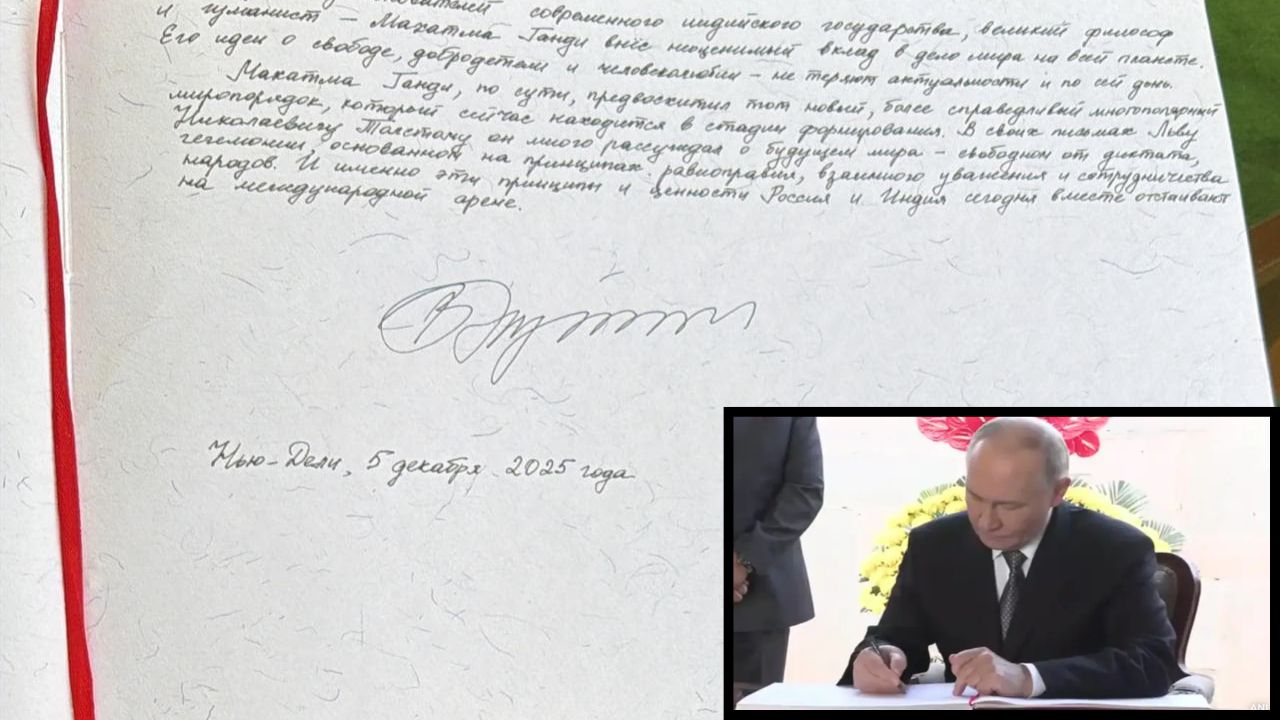 современного индийского государства, великий философ
и гуманист – Махатма Ганди внёс неоценимый вклад в дело мира на всей планете.
Его идеи о свободе, добродетели и человеколюбии – не теряют актуальности и по сей день.
Махатма Ганди, по сути, предвосхитил тот новый, более справедливый многополярный
миропорядок, который сейчас находится в стадии формирования. В своих письмах Льву
Николаевичу Толстому он много рассуждал о будущем мира – свободном от диктата,
гегемонии, основанном на принципах равноправия, взаимного уважения и сотрудничества
народов. И именно эти принципы и ценности Россия и Индия сегодня вместе отстаивают
на международной арене.
Нью-Дели, 5 декабря 2025 года
ANI